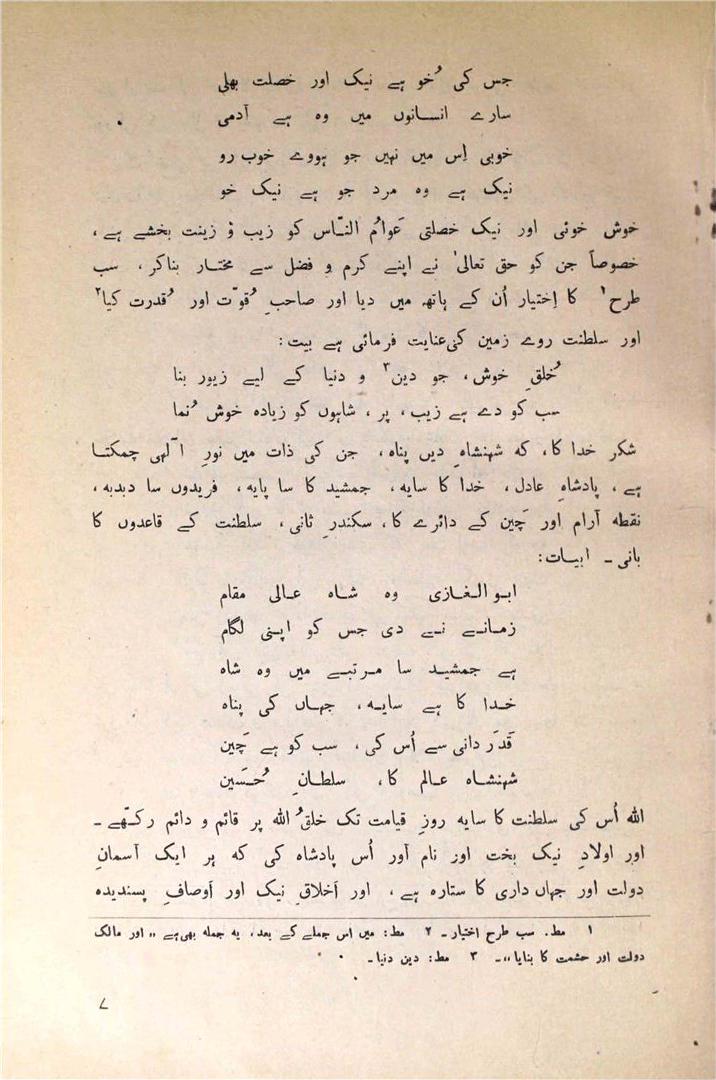 جس کی خُو ہے نیک اور خصلت بھلی
سارے انسانوں میں وہ ہے آدمی
خوبی اِس میں نہیں جو ہووے خوب رو
نیک ہے وہ مرد جو ہے نیک خو
خوش خوئی اور نیک خصلتی عَوامُ النّاس کو زیب و زینت بخشے ہے،
خصوصاً جن کو حق تعالیٰ نے اپنے کرم و فضل سے مختار بنا کر، سب
طرح۱ کا اِختیار اُن کے ہاتھ میں دیا اور صاحبِ قُوّت اور قُدرت کیا۲
اور سلطنت روے زمین کی عنایت فرمائی ہے بیت:
خُلقِ خوش، جو دین۳ و دنیا کے لیے زیور بنا
سب کو دے ہے زیب، پر، شاہوں کو زیادہ خوش نُما
شکر خدا کا، کہ شہنشاہِ دیں پناہ، جن کی ذات میں نورِ الٰہی چمکتا
ہے، پادشاہِ عادل، خدا کا سایہ، جمشید کا سا پایہ، فریدوں سا دبدبہ،
نقطہ آرام اور چَین کے دائرے کا، سکندرِ ثانی، سلطنت کے قاعدوں کا
بانی ۔ ابیات:
ابو الغازی وہ شاہ عالی مقام
زمانے نے دی جس کو اپنی لگام
ہے جمشید سا مرتبے میں وہ شاہ
خدا کا ہے سایہ، جہاں کی پناہ
قَدَر دانی سے اُس کی، سب کو ہے چَین
شہنشاہ عالم کا، سلطانِ حُسَین
اللہ اُس کی سلطنت کا سایہ روزِ قیامت تک خلقُ اللہ پر قائم و دائم رکھّے ۔
اور اولادِ نیک بخت اور نام آور اُس پادشاہ کی کہ ہر ایک آسمانِ
دولت اور جہاں داری کا ستارہ ہے، اور اَخلاقِ نیک اور اَوصافِ پسندیدہ
۱ مط. سب طرح اختیار ۔ ۲ مط: میں اس جملے کے بعد، یہ جملہ بھی ہے ,,اور مالک
دولت اور حشمت کا بنایا،، ۔ ۳ مط: دین دنیا ۔
۷